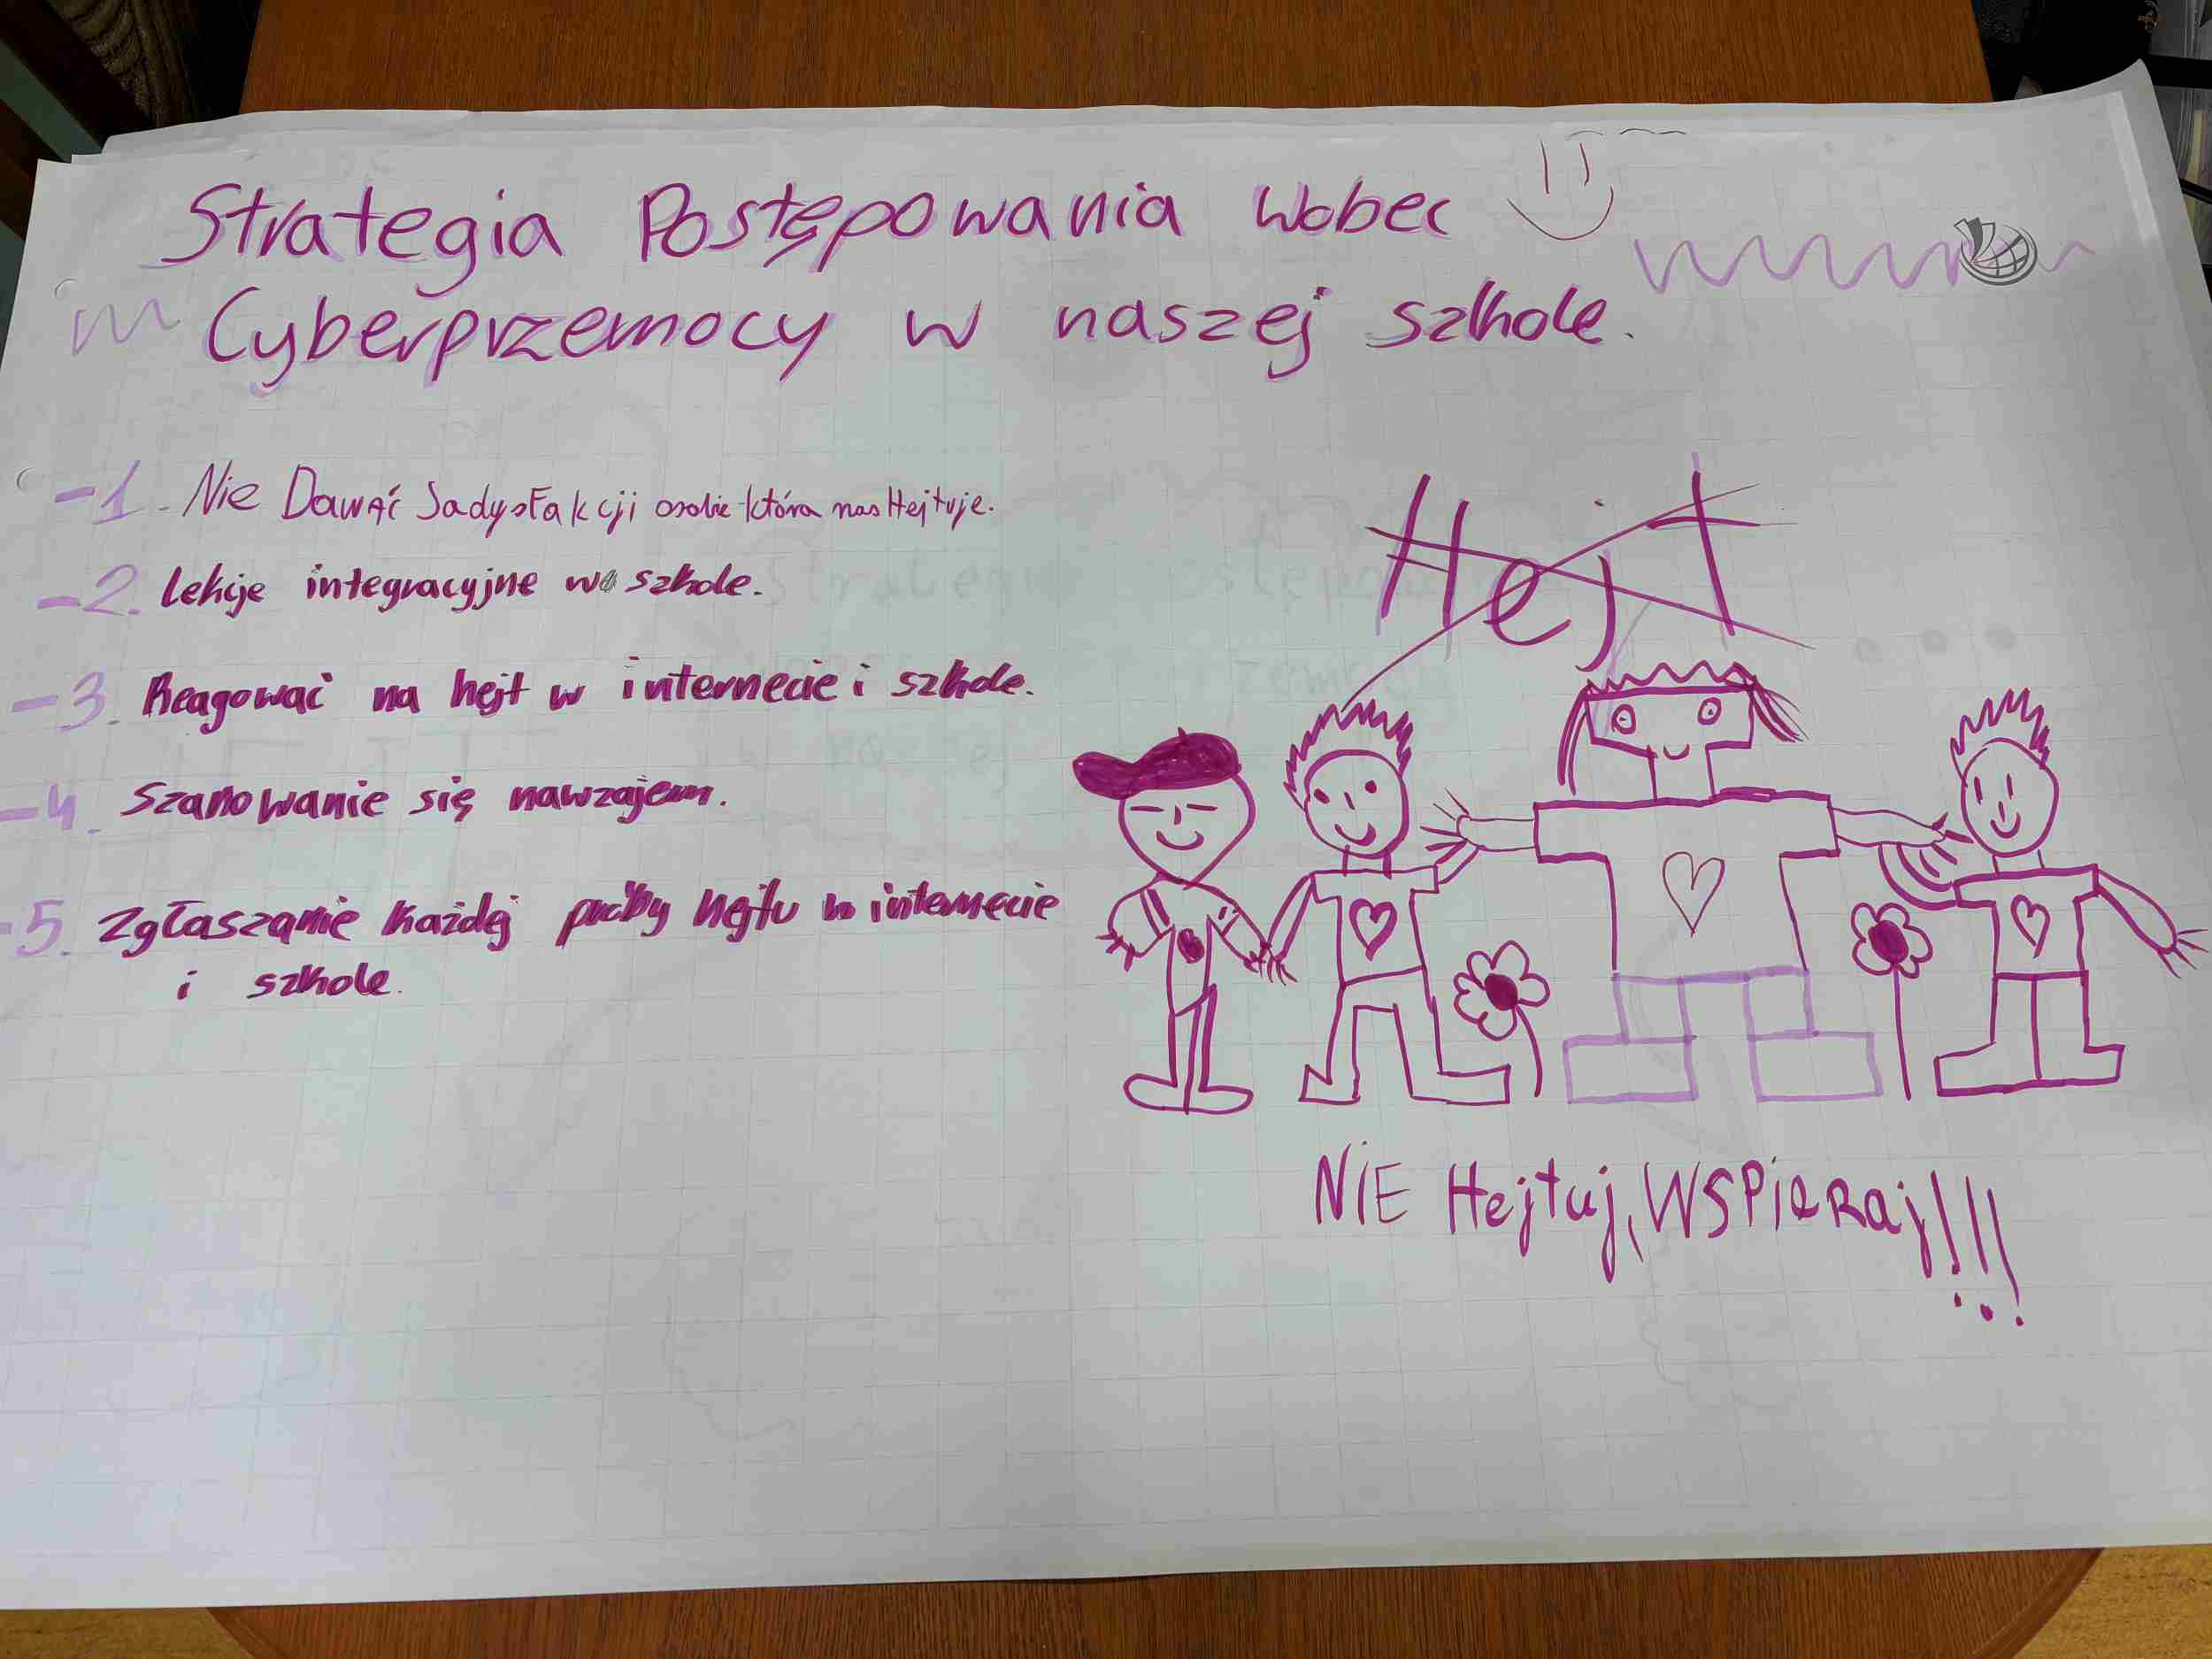 Strategia Postępowania wobec
Cyberprzemocy w naszej szkole.
-1. Nie Dawać Sadysfakcji osobie która nas Hejtuje.
-2. Lekcje integracyjne w szkole.
-3. Reagować na hejt w internecie i szkole.
-4. Szanowanie się nawzajem.
-5. Zgłaszanie każdej próby hejtu w internecie
i szkole.
Hejt
NIE Hejtuj, WSPieRaj!!!